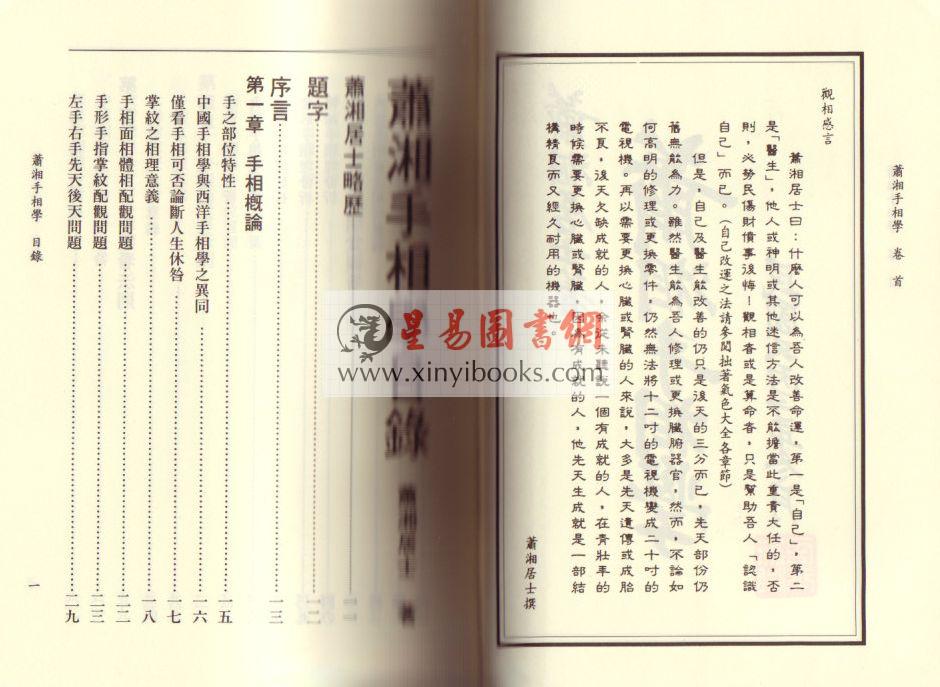 蕭湘手相學 卷首
觀相感言
蕭湘居士曰：什麼人可以為吾人改善命運，第一是「自己」，第二
是「醫生」，他人或神明或其他迷信方法是不能擔當此重責大任的，否
則，必勞民傷財僨事後悔！觀相者或是算命者，只是幫助吾人「認識
自己」而已。（自己改運之法請參閱拙著氣色大全各章節）
但是，自己及醫生能改善的仍只是後天的三分而已，先天部份仍
舊無能為力。雖然醫生能為吾人修理或更換臟腑器官，然而，不論如
何高明的修理或更換零件，仍然無法將十二吋的電視機變成二十吋的
電視機。再以需要更換心臟或腎臟的人來說，大多是先天遺傳或成胎
不良，後天欠缺成就的人，余從未聽說一個有成就的人，在青壯年的
時候需要更換心臟或腎臟，因為有成就的人，他先天生成就是一部結
構精良而又經久耐用的機器也。
蕭湘居士撰
蕭湘手相學目錄
蕭湘居士 著
蕭湘居士略歷
題字
序言 一三
第一章 手相概論
手之部位特性 一五
中國手相學與西洋手相學之異同 一六
僅看手相可否論斷人生休咎 一七
掌紋之相理意義 一八
手相面相體相配觀問題 二二
手形手指掌紋配觀問題 二三
左手右手先天後天問題 二九
蕭湘手相學 目錄
一
星易圖書網
www.xinyibooks.com